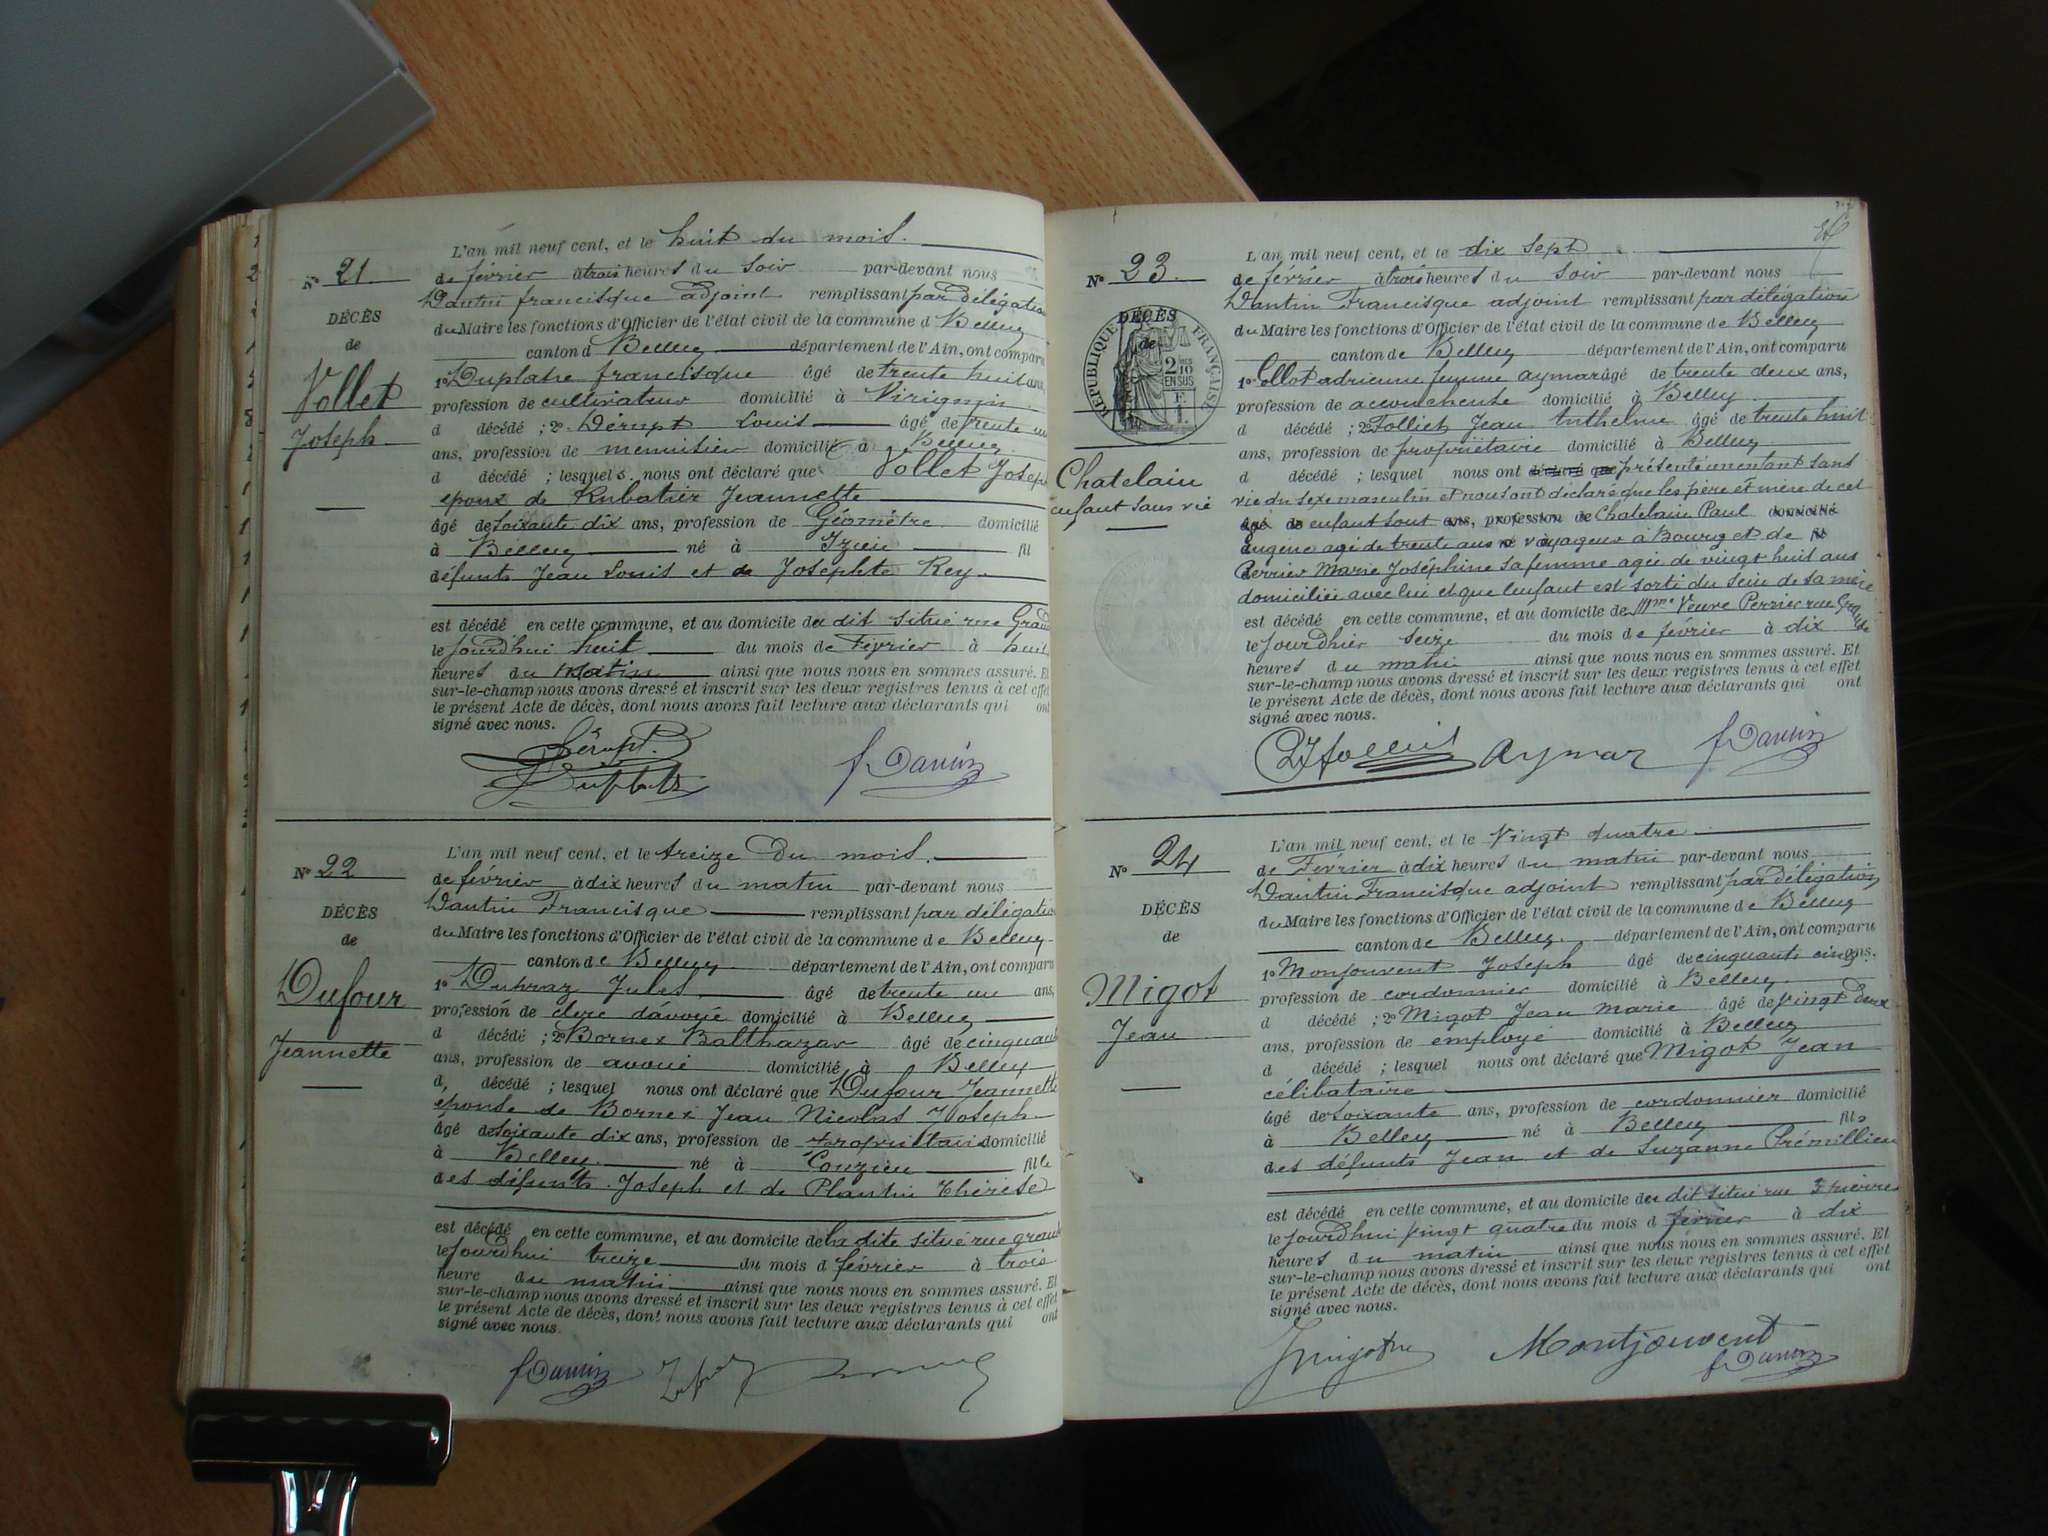 L'an mil neuf cent, et le huit du mois.
N° 21
de février à trois heures du soir par-devant nous
Dantin francisque adjoint remplissant par délégation
DÉCÈS
du Maire les fonctions d'Officier de l'état civil de la commune d Belley
de
canton d Belley département de l'Ain, ont comparu
Vollet
1° Duplatre francisque âgé de trente huit ans,
profession de cultivateur domicilié à Virignin
Joseph
d décédé ; 2° Dérupt Louis âgé de trente un
ans, profession de menuisier domicilié à Belley
d décédé ; lesquels nous ont déclaré que Vollet Joseph
epoux de Rubatier Jeannette
âgé de soixante dix ans, profession de Géomètre domicilié
à Belley né à Izieu fil
défunts Jean Louis et de Josephte Rey
est décédé en cette commune, et au domicile du dit situé rue Grande
le jourd'hui huit du mois de Février à huit
heures du matin ainsi que nous nous en sommes assuré. Et
sur-le-champ nous avons dressé et inscrit sur les deux registres tenus à cet effet
le présent Acte de décès, dont nous avons fait lecture aux déclarants qui ont
signé avec nous.
Dérupt
Duplatre
f Dantin
L'an mil neuf cent, et le treize du mois.
N° 22
de février à dix heures du matin par-devant nous
Dantin Francisque remplissant par délégation
DÉCÈS
du Maire les fonctions d'Officier de l'état civil de la commune de Belley
de
canton de Belley département de l'Ain, ont comparu
Dufour
1° Duhraz Jules âgé de trente un ans,
profession de clerc d'avoué domicilié à Belley
Jeannette
d décédé ; 2° Bornex Balthazar âgé de cinquante
ans, profession de avoué domicilié à Belley
d décédé ; lesquel nous ont déclaré que Dufour Jeannette
epouse de Bornex Jean Nicolas Joseph
âgé de soixante dix ans, profession de propriétaire domicilié
à Belley né à Conzieu fille
des défunts Joseph et de Plantin Thérèse
est décédé en cette commune, et au domicile de la dite situé rue grande
le jourdhui treize du mois d février à trois
heure du matin ainsi que nous nous en sommes assuré. Et
sur-le-champ nous avons dressé et inscrit sur les deux registres tenus à cet effet
le présent Acte de décès, dont nous avons fait lecture aux déclarants qui ont
signé avec nous.
f Dantin
L'an mil neuf cent, et le dix sept
N° 23
de février à trois heures du soir par-devant nous
Dantin Francisque adjoint remplissant par délégation
DÉCÈS
RÉPUBLIQUE FRANÇAISE
2/10 EN SUS
du Maire les fonctions d'Officier de l'état civil de la commune de Belley
de
canton de Belley département de l'Ain, ont comparu
1° Collot adrienne femme aymar âgé de trente deux ans,
profession de accoucheuse domicilié à Belley
d décédé ; 2° Folliet Jean Anthelme âgé de trente huit
ans, profession de propriétaire domicilié à Belley
Chatelain
enfant sans vie
d décédé ; lesquel nous ont déclaré que présenté un enfant sans
vie du sexe masculin et nous ont déclaré que les père et mère de cet
âgé de enfant sont ans, profession de Chatelain Paul domicilié
Eugène agé de trente ans né voyageur à Bourg et de fil
Perrier Marie Joséphine sa femme agée de vingt huit ans
domiciliée avec lui et que l'enfant est sorti du sein de sa mère
est décédé en cette commune, et au domicile de Mme Veuve Perrier rue Grande
le jourdhier seize du mois de février à dix
heures du matin ainsi que nous nous en sommes assuré. Et
sur-le-champ nous avons dressé et inscrit sur les deux registres tenus à cet effet
le présent Acte de décès, dont nous avons fait lecture aux déclarants qui ont
signé avec nous.
Folliet Aymar f Dantin
L'an mil neuf cent, et le Vingt quatre
N° 24
de Février à dix heures du matin par-devant nous
Dantin Francisque adjoint remplissant par délégation
DÉCÈS
du Maire les fonctions d'Officier de l'état civil de la commune de Belley
de
canton de Belley département de l'Ain, ont comparu
Migot
1° Monjouvent Joseph âgé de cinquante cinq ans.
profession de cordonnier domicilié à Belley
Jean
d décédé ; 2° Migot Jean Marie âgé de vingt deux
ans, profession de employé domicilié à Belley
d décédé ; lesquel nous ont déclaré que Migot Jean
célibataire
âgé de soixante ans, profession de cordonnier domicilié
à Belley né à Belley fils
des défunts Jean et de Suzanne Prémillieu
est décédé en cette commune, et au domicile du dit situé rue 3 lièvres
le jourdhui vingt quatre du mois d février à dix
heures du matin ainsi que nous nous en sommes assuré. Et
sur-le-champ nous avons dressé et inscrit sur les deux registres tenus à cet effet
le présent Acte de décès, dont nous avons fait lecture aux déclarants qui ont
signé avec nous.
Montjouvent
f Dantin